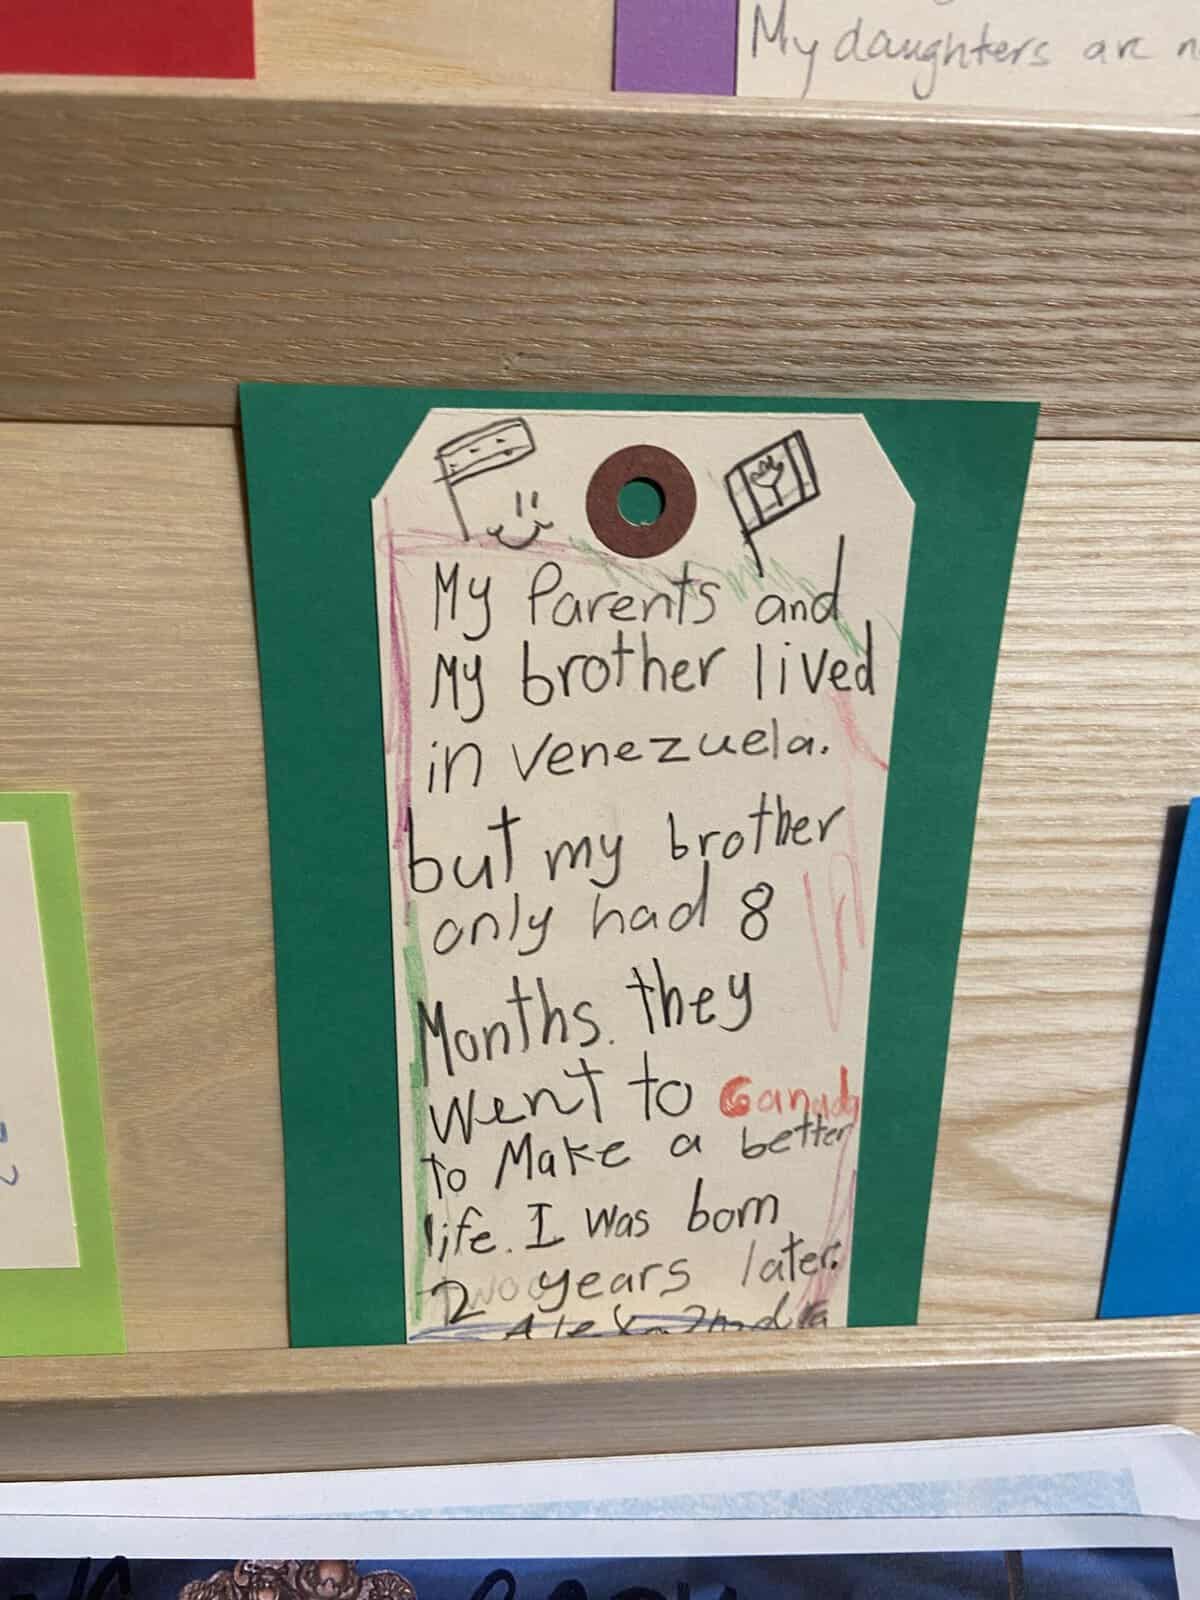 My daughters are
My Parents and
My brother lived
in venezuela.
but my brother
only had 8
Months. they
went to Canada
to Make a better
life. I was born
2 years later.